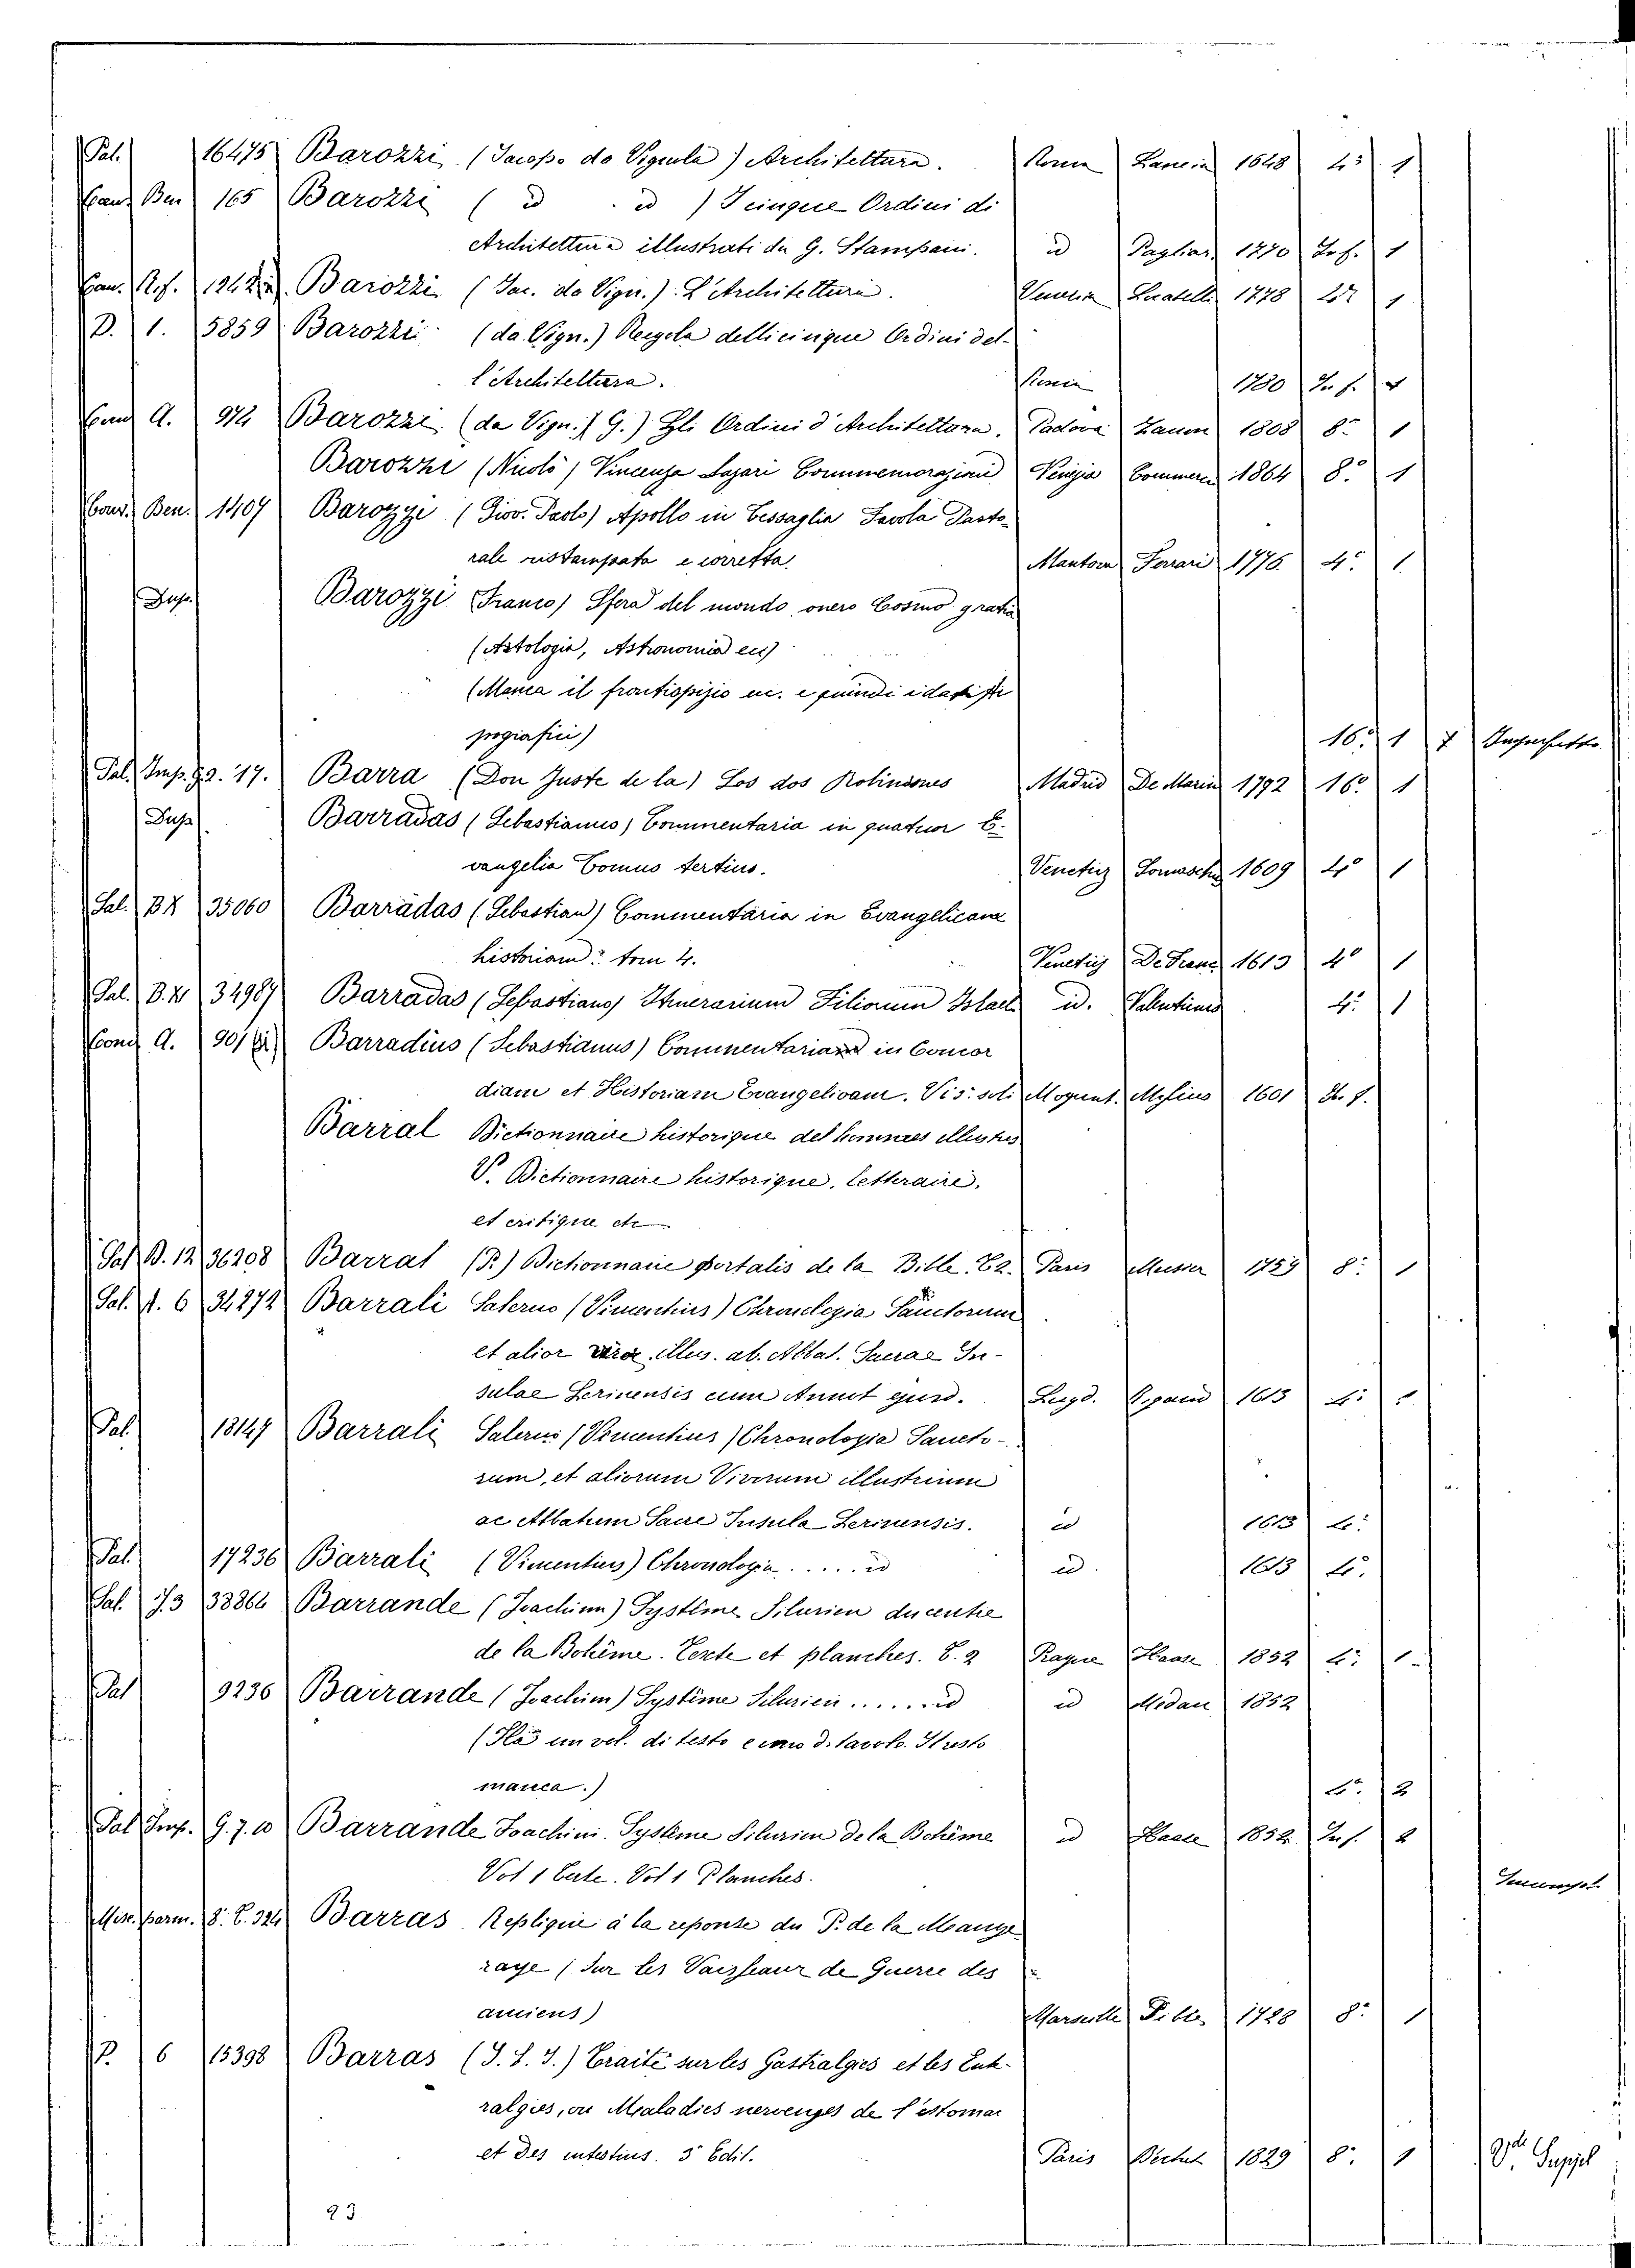 Pal. 16475 Barozzi (Jacopo da Vignola) Architettura. Roma 1648 4° 1
Ben 165 Barozzi ( id id ) I cinque Ordini di
Architettura illustrati da G. Stampani. id Pagliar. 1770 In f. 1
Barozzi (Jac. da Vign.) L'Architettura. Venezia Locatelli 1778 1
D. 1. 5859 Barozzi (da Vign.) Regola delli cinque Ordini del-
l'Architettura. 1780 In f.
A. 974 Barozzi (da Vign. G.) Gli Ordini d'Architettura. Padova Zanon 1808 8° 1
Barozzi (Nicolò) Vincenzo Lazari Commemorazione Venezia Commercio 1864 8° 1
Ben. 1407 Barozzi (Giov. Paolo) Apollo in Tessaglia Favola Pasto-
rale ristampata e corretta. Mantova Ferrari 1776 4° 1
Barozzi (Franco) Sfera del mondo overo Cosmo grafia
(Astologia, Astronomia ecc)
(Manca il frontispizio ecc. e quindi i dati ti
pografici) 16° 1
Pal. Imp. 92. 17. Barra (Don Juste de la) Los dos Robinsones Madrid De Marin 1792 16° 1
Barradas (Sebastianus) Commentaria in quatuor E-
vangelia Tomus tertius. Venetiis 1609 4° 1
Pal. 35060 Barradas (Sebastian) Commentaria in Evangelicam
historiam: tom 4. Venetiis De Franc 1613 4° 1
Pal. 34987 Barradas (Sebastianus) Itinerarium Filiorum Israel id. Valentinus 4° 1
A. 901 Barradius (Sebastianus) Commentariam in Concor
diam et Historiam Evangelicam. Mogunt. Mylius 1601 In f.
Barral Dictionnaire historique del hommes illustres
V. Dictionnaire historique, letteraire,
et critique etc
Pal. B. 12 36208 Barral (P.) Dictionnaire portatif de la Bible. T.2. Paris Musier 1759 8° 1
Pal. A. 6 34272 Barrali Salerno (Vincentius) Chronologia Sanctorum
et alior viror. illus. ab. Abbat. Sacrae In-
sulae Lerinensis cum Annot ejusd. Lugd. 1613 4°
Pal. 18147 Barrali Salerno (Vincentius) Chronologia Sancto-
rum, et aliorum Virorum illustrium
ac Abbatum Sacre Insula Lerinensis. id 1613 4°
Pal. 17236 Barrali (Vincentius) Chronologia ..... id id 1613 4°
Pal. 33864 Barrande (Joachim) Système Silurien du centre
de la Bohême. Texte et planches. T. 2 Prague Haase 1852 4° 1
Pal 9236 Barrande (Joachim) Système Silurien ...... id id 1852
(Ha un vol. di testo e uno di tavole. Il resto
manca.) 4° 2
Pal Imp. G. 7. 10 Barrande Joachim. Système Silurien de la Bohême id Haase 1852 In f. 2
Vol 1 Texte. Vol 1 Planches.
Misc. parm. 8. T. 324 Barras Replique à la reponse du P. de la Mauge
raye (Sur les Vaisseaux de Guerre des
anciens) Marseille 1728 8° 1
P. 6 15398 Barras (J. P. T.) Traité sur les Gastralgies et les Ente-
ralgies, ou Maladies nervenses de l'estomac
et des intestins. 3e Edit. Paris Bechet 1829 8° 1
23